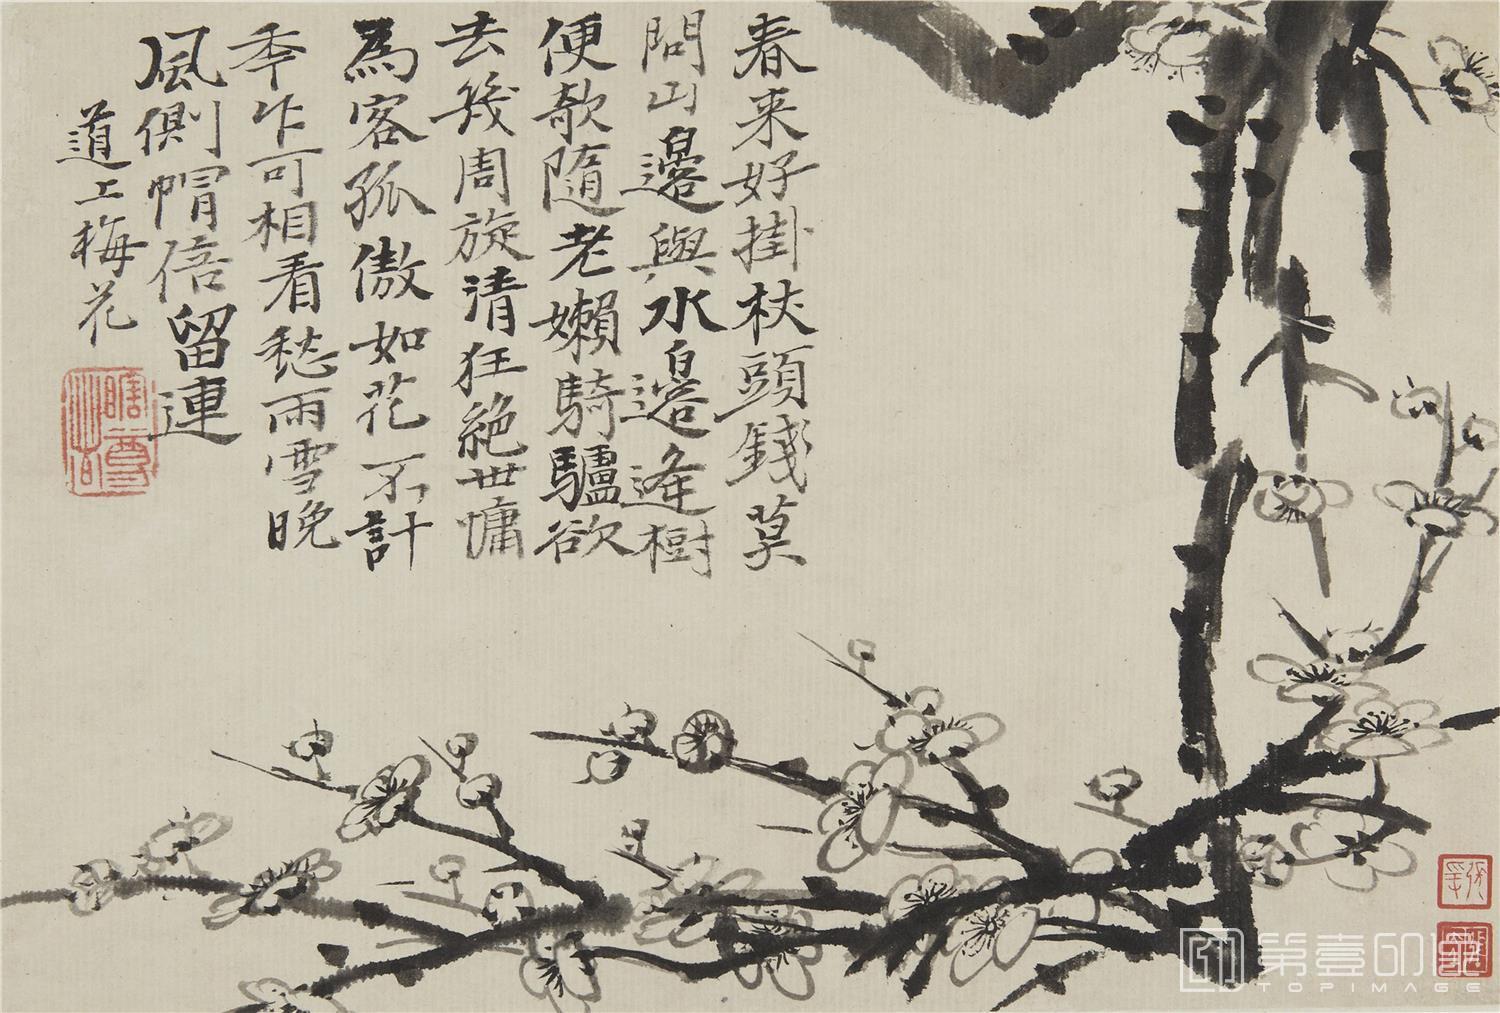 春来好掛杖頭錢莫
問山邊與水邊逢樹
便欹隨老嬾騎驢欲
去幾周旋清狂絕世慵
為客孤傲如花不計
秊乍可相看愁雨雪晚
風側帽倍留連
道上梅花
瞎尊者
TOPIMAGE